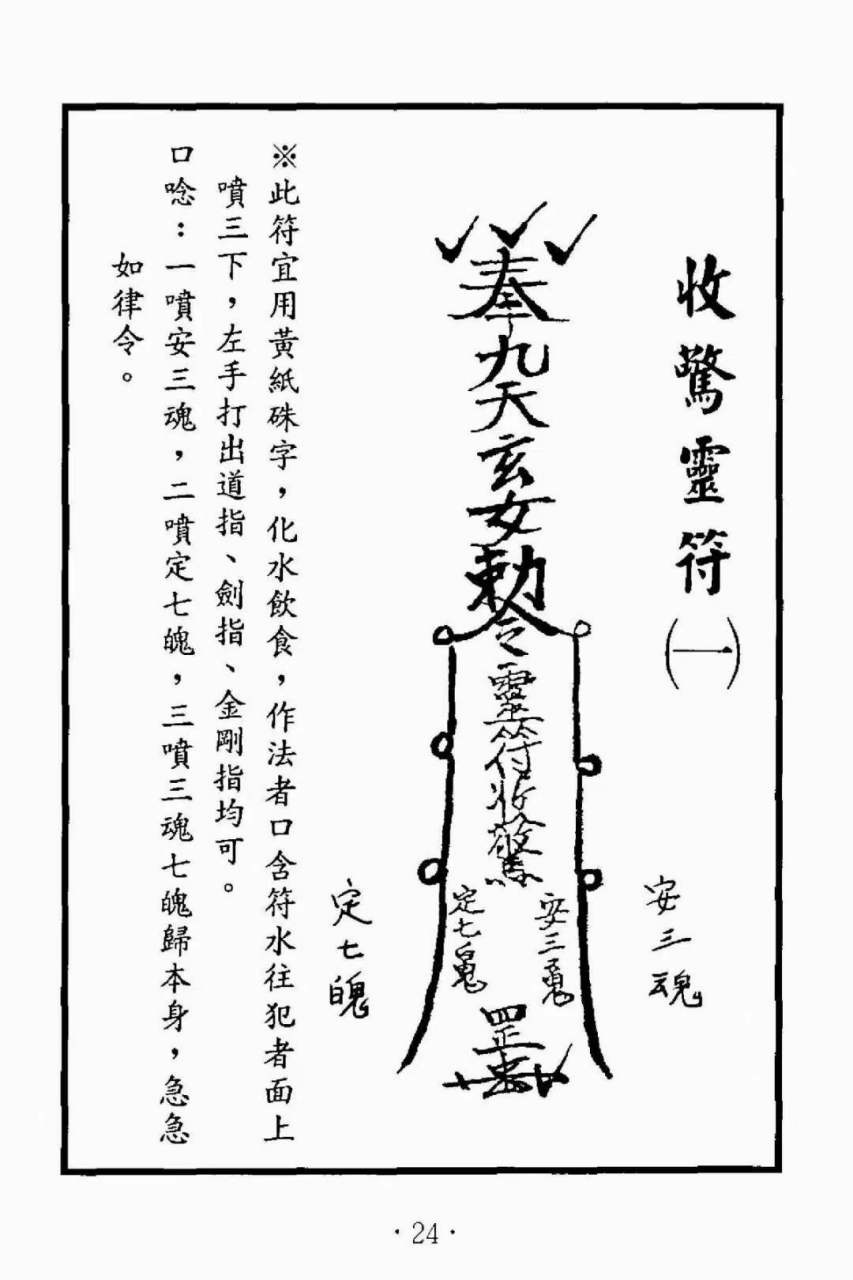 收驚靈符㈠
安三魂
奉九天玄女勅令靈符收驚
安三魂
定七魄
罡
定七魄
※此符宜用黃紙硃字,化水飲食,作法者口含符水往犯者面上
噴三下,左手打出道指、劍指、金剛指均可。
口唸:一噴安三魂,二噴定七魄,三噴三魂七魄歸本身,急急
如律令。
·24·